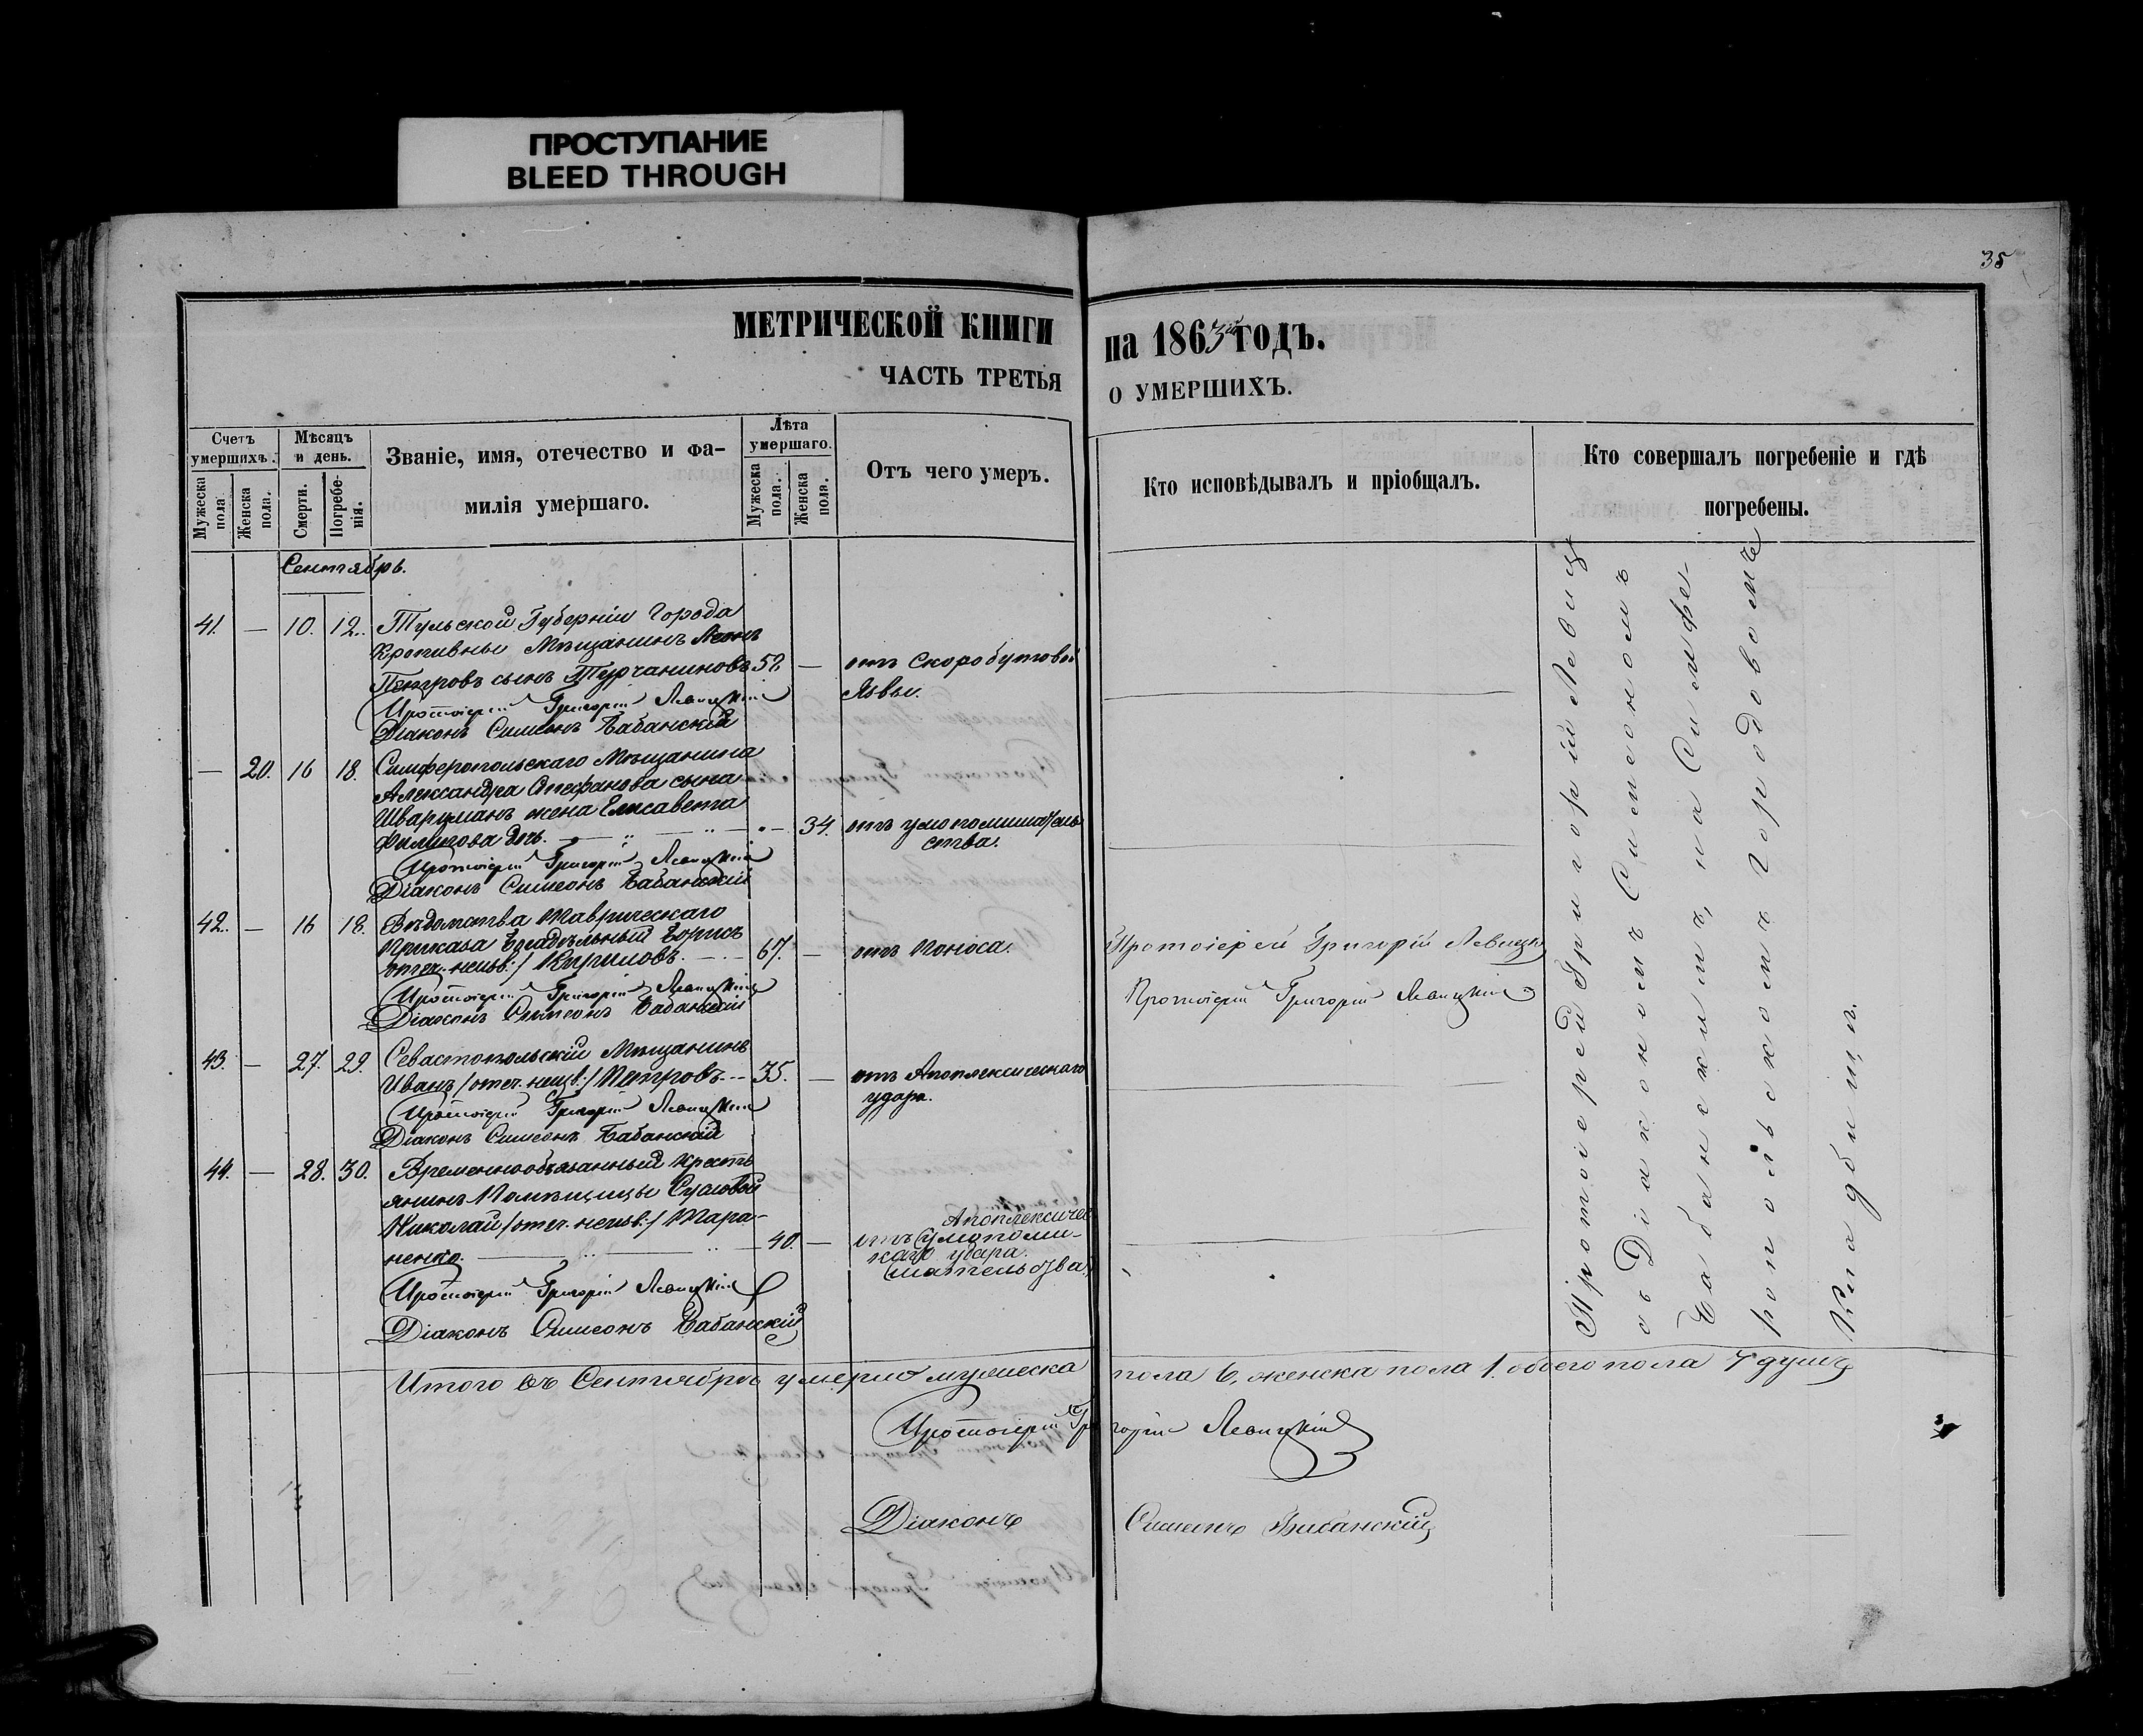 ПРОСТУПАНИЕ
BLEED THROUGH
35
МЕТРИЧЕСКОЙ КНИГИ на 1863й ГОДЪ.
ЧАСТЬ ТРЕТЬЯ О УМЕРШИХЪ.
Счетъ умершихъ.
Мужеска пола
Женска пола.
Мѣсяцъ и день.
Смерти.
Погребе-нія.
Званіе, имя, отечество и фа-
милія умершаго.
Лѣта умершаго.
Мужеска пола.
Женска пола.
Отъ чего умеръ.
Кто исповѣдывалъ и пріобщалъ.
Кто совершалъ погребеніе и гдѣ
погребены.
Сентябрь.
41. — 10. 12. Тульской Губерніи Города
Кропивны Мѣщанинъ Леонъ
Петровъ сынъ Турчаниновъ 52 — отъ Скоробутовой
Язвы.
Протоіерей Григорій Левицкій
Діаконъ Симеонъ Бабанскій
— 20. 16 18. Симферопольскаго Мѣщанина
Александра Стефанова сына
Шварцманъ жена Елисавета
Филипова дочь. — 34. отъ умопомѣшатель
ства.
Протоіерей Григорій Левицкій
Діаконъ Симеонъ Бабанскій
42. — 16 18. Вѣдомства Таврическаго
Приказа Богадѣльный Борисъ
/отеч. неизв:/ Кириловъ. — 67. — отъ Поноса. Протоіерей Григорій Левицкій
Протоіерей Григорій Левицкій
Діаконъ Симеонъ Бабанскій
Протоіерей Григорій Левицкій
43. — 27. 29. Севастопольскій Мѣщанинъ
Иванъ /отеч. неизв:/ Петровъ. — 35. — отъ Апоплексическаго
удара.
Протоіерей Григорій Левицкій
Діаконъ Симеонъ Бабанскій
44. — 28. 30. Временнообязанный кресть
янинъ Помѣщицы
Николай /отеч. неизв:/ Тара-
ненко. — 40. — отъ (умопомѣ-
Апоплексичес
каго удара.
шательства)
Протоіерей Григорій Левицкій
Діаконъ Симеонъ Бабанскій
Протоіерей Григорій Левиц
съ Діакономъ Симеономъ
Бабанскимъ, на Симфе-
ропольскомъ Городовомъ
Кладбищѣ.
Итого въ Сентябрѣ умерло мужеска пола 6, женска пола 1. обоего пола 7 душъ
Протоіерей Григорій Левицкій
Діаконъ Симеонъ Бабанскій